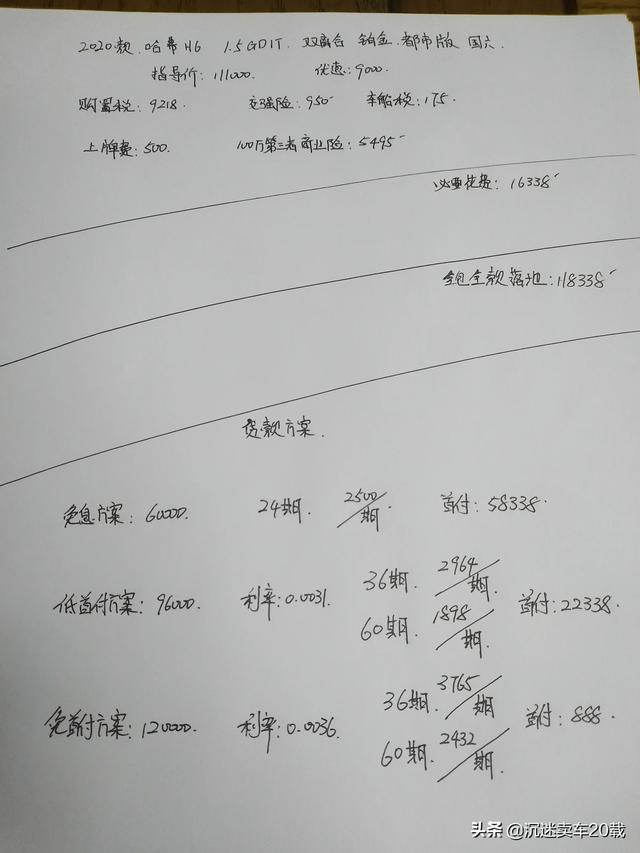 2020款.哈弗H6 1.5GDIT.双离合 铂金.都市版 国六.
指导价:111000. 优惠:9000.
购置税:9218. 交强险:950 车船税:175.
上牌费:500. 100万第三者商业险:5495
必要花费:16338
全包全款落地:118338
贷款方案.
免息方案:60000. 24期. 2500/期. 首付:58338.
低首付方案:96000. 利率:0.0031. 36期. 2964/期. 首付:22338.
60期. 1898/期.
免首付方案:120000. 利率:0.0036. 36期. 3765/期 首付:888.
60期. 2432/期.
头条 @沉迷卖车20载